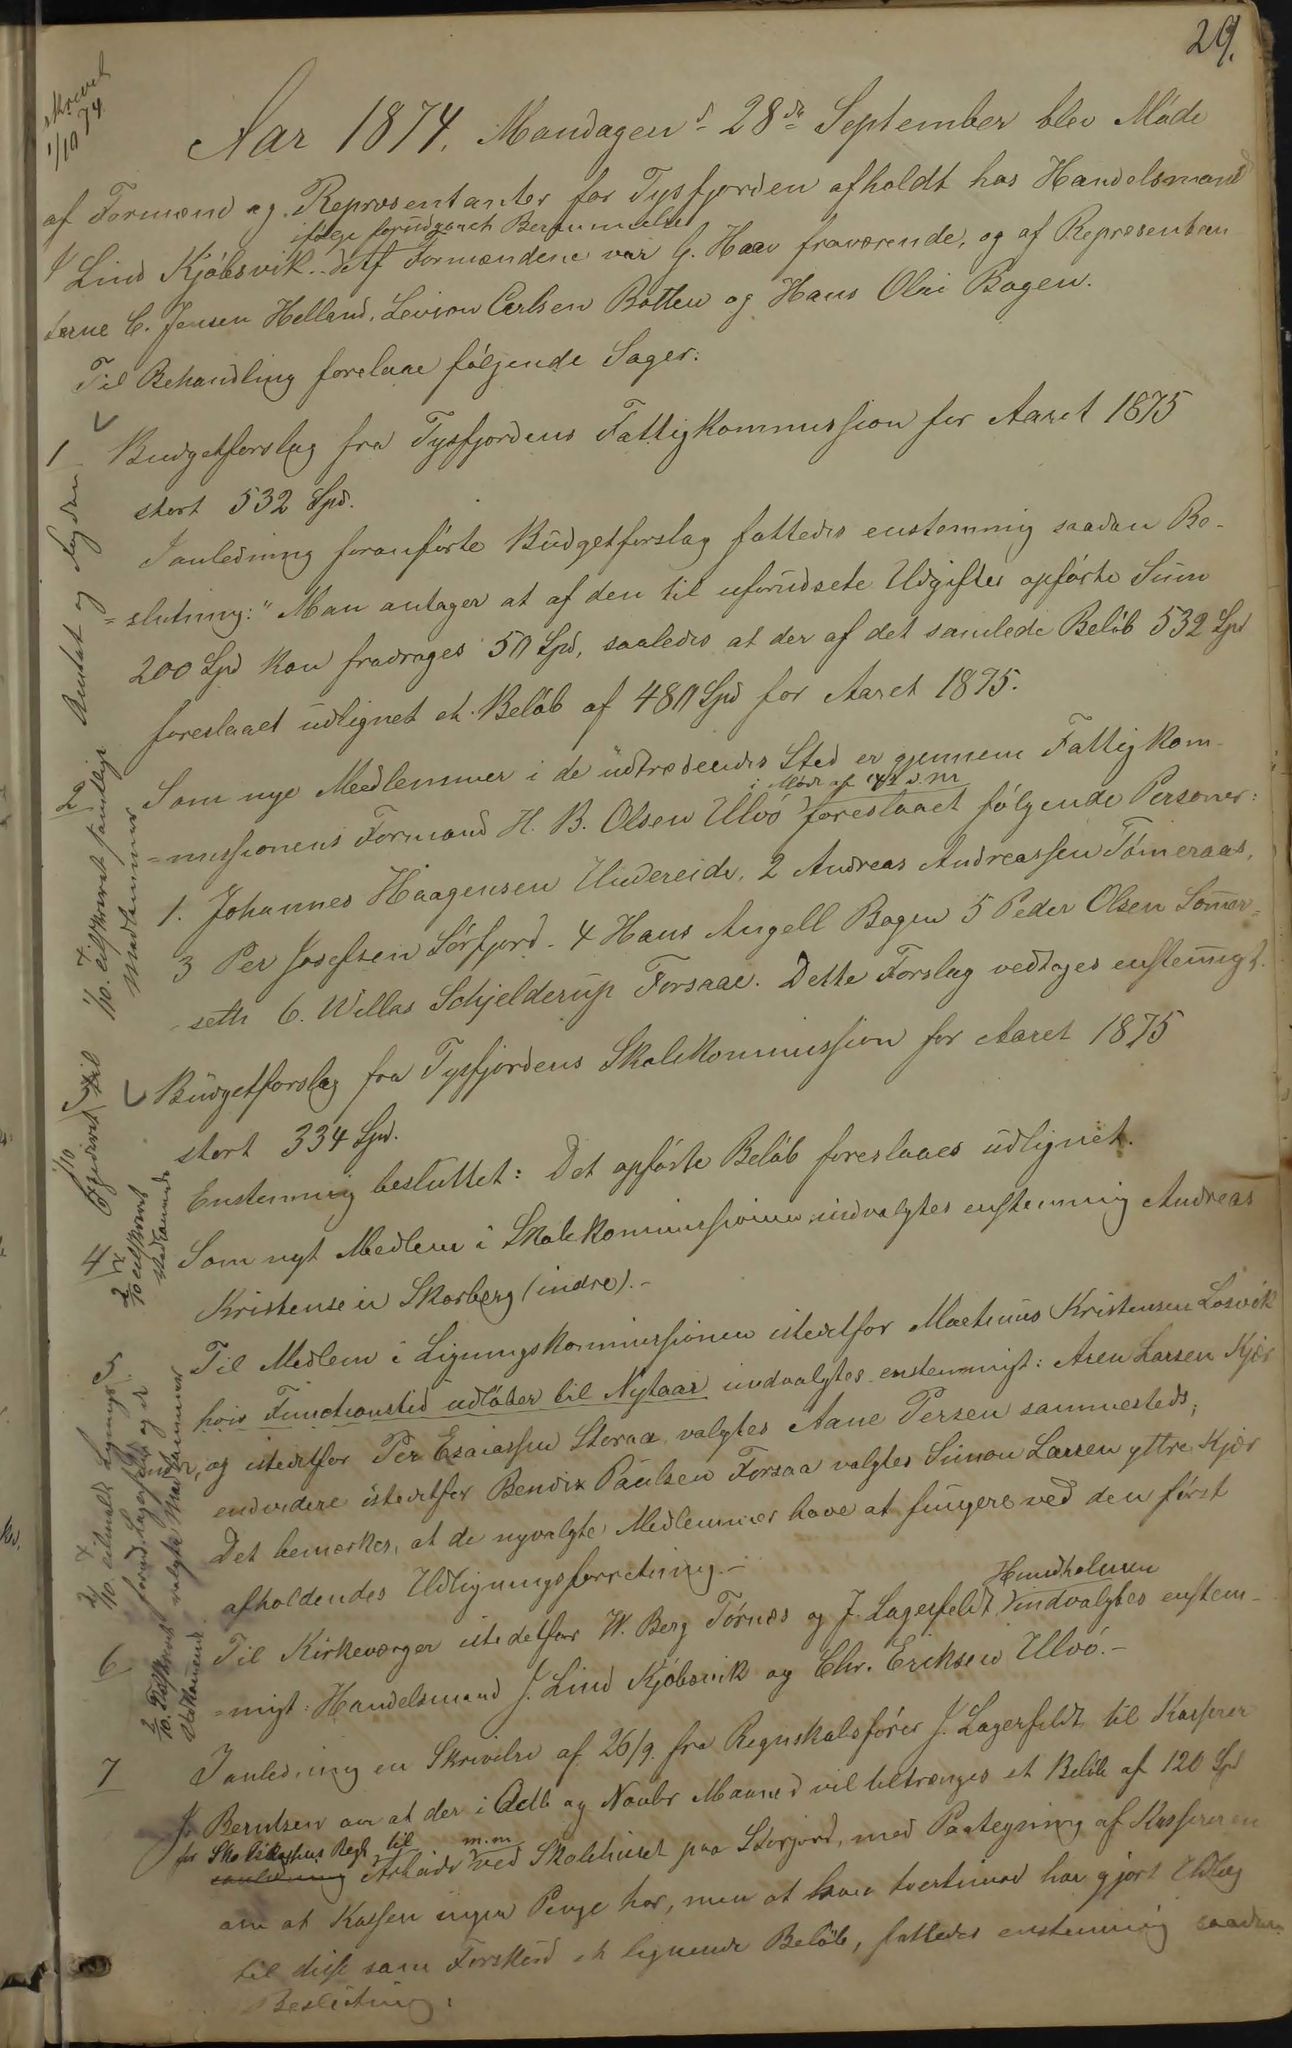 29.
skrevet
1/10 74
Aar 1874, Mandagen d. 28de September blev Møde
af Formænd og Repræsentanter for Tysfjorden afholdt hos Handelsmand
ifølge forudgaaet Berammelse
J Lind Kjøbsvik. Af Formændene var G. Haav fraværende, og af Representan
terne C. Jensen Helland, Levion Carlsen Botten og Hans Olai Bogen.
Til Behandling forelaae følgende Sager:
1 Budgetforslag fra Tysfjordens Fattigkommission for Aaret 1875
stort 532 Spd.
I anledning foranførte Budgetforslag fattedes enstemmig saadan Be-
=slutning: "Man antager at af den til uforudsete Udgifter opførte Sum
200 Spd kan fradrages 50 Spd, saaledes at der af det samlede Beløb 532 Spd
foreslaaes udlignet et Beløb af 480 Spd for Aaret 1875.
2 Som nye Medlemmer i de udtrædendes Sted er gjennem Fattigkom-
i Møde af d.m
=missionens Formand H. B. Olsen Ulvø foreslaaet følgende Personer:
1. Johannes Haagensen Hundereide, 2 Andreas Andreassen Tømeraas,
3 Per Josefsen Sørfjord. 4 Hans Angell Bogen 5 Peder Olsen Som̅er=
seth 6. Willas Schjelderup Forsaae. Dette Forslag vedtoges enstem̅igt.
3 Budgetforslag fra Tysfjordens Skolekommission for Aaret 1875
stort 334 Spd.
Enstemmig besluttet: Det opførte Beløb foreslaaes udlignet.
4 Som nyt Medlem i Skolekommissionen indvalgtes enstemmig Andreas
Kristensen Skarberg (indre).-
5 Til Medlem i Ligningskommissionen istedetfor Martinus Kristensen Losvik
hvis Functionstid udløber til Nytaar indvalgtes enstemmigt: Aren Larsen Kjær
og istedetfor Per Esaiassen Storaa valgtes Aane Persen sammesteds;
endvidere istedetfor Bendix Paulsen Forsaa valgtes Simon Larsen yttre Kjær
Det bemærkes, at de nyvalgte Medlemmer have at fungere ved den først
afholdendes Udligningsforretning.-
Hundholmen
6 Til Kirkeværger istedetfor W. Berg Tørnæs og J. Lagerfeldt indvalgtes enstem-
=migt: Handelsmand J. Lind Kjøbsvik og Chr. Eriksen Ulvø.-
7 I anledning en Skrivelse af 26/9. fra Regnskabsfører J. Lagerfeldt til Kasserer
J. Berntsen om at der i Octb og Novbr Maaned vil tiltrænges et Beløb af 120 Spd
for Skolekassens Regn til m.m
Arbeide ved Skolehuset paa Storjord, med Paategning af Kassereren
om at Kassen ingen Penge har, men at han tvertimod har gjort Udlæg
til disse som Forskud et lignende Beløb, fattedes enstemmig saadan
Beslutning:
Amtet og Fogden
1/10. tilskrevet samtlige
Medlemmer
1/10 Expederet til
2/10 tilskrevet
vedkommende
2/10. tilmeldt Lignings
formd. Lagerfeldt og de
valgte Medlemmer
2/10. Tilskrevet
Vedkommende